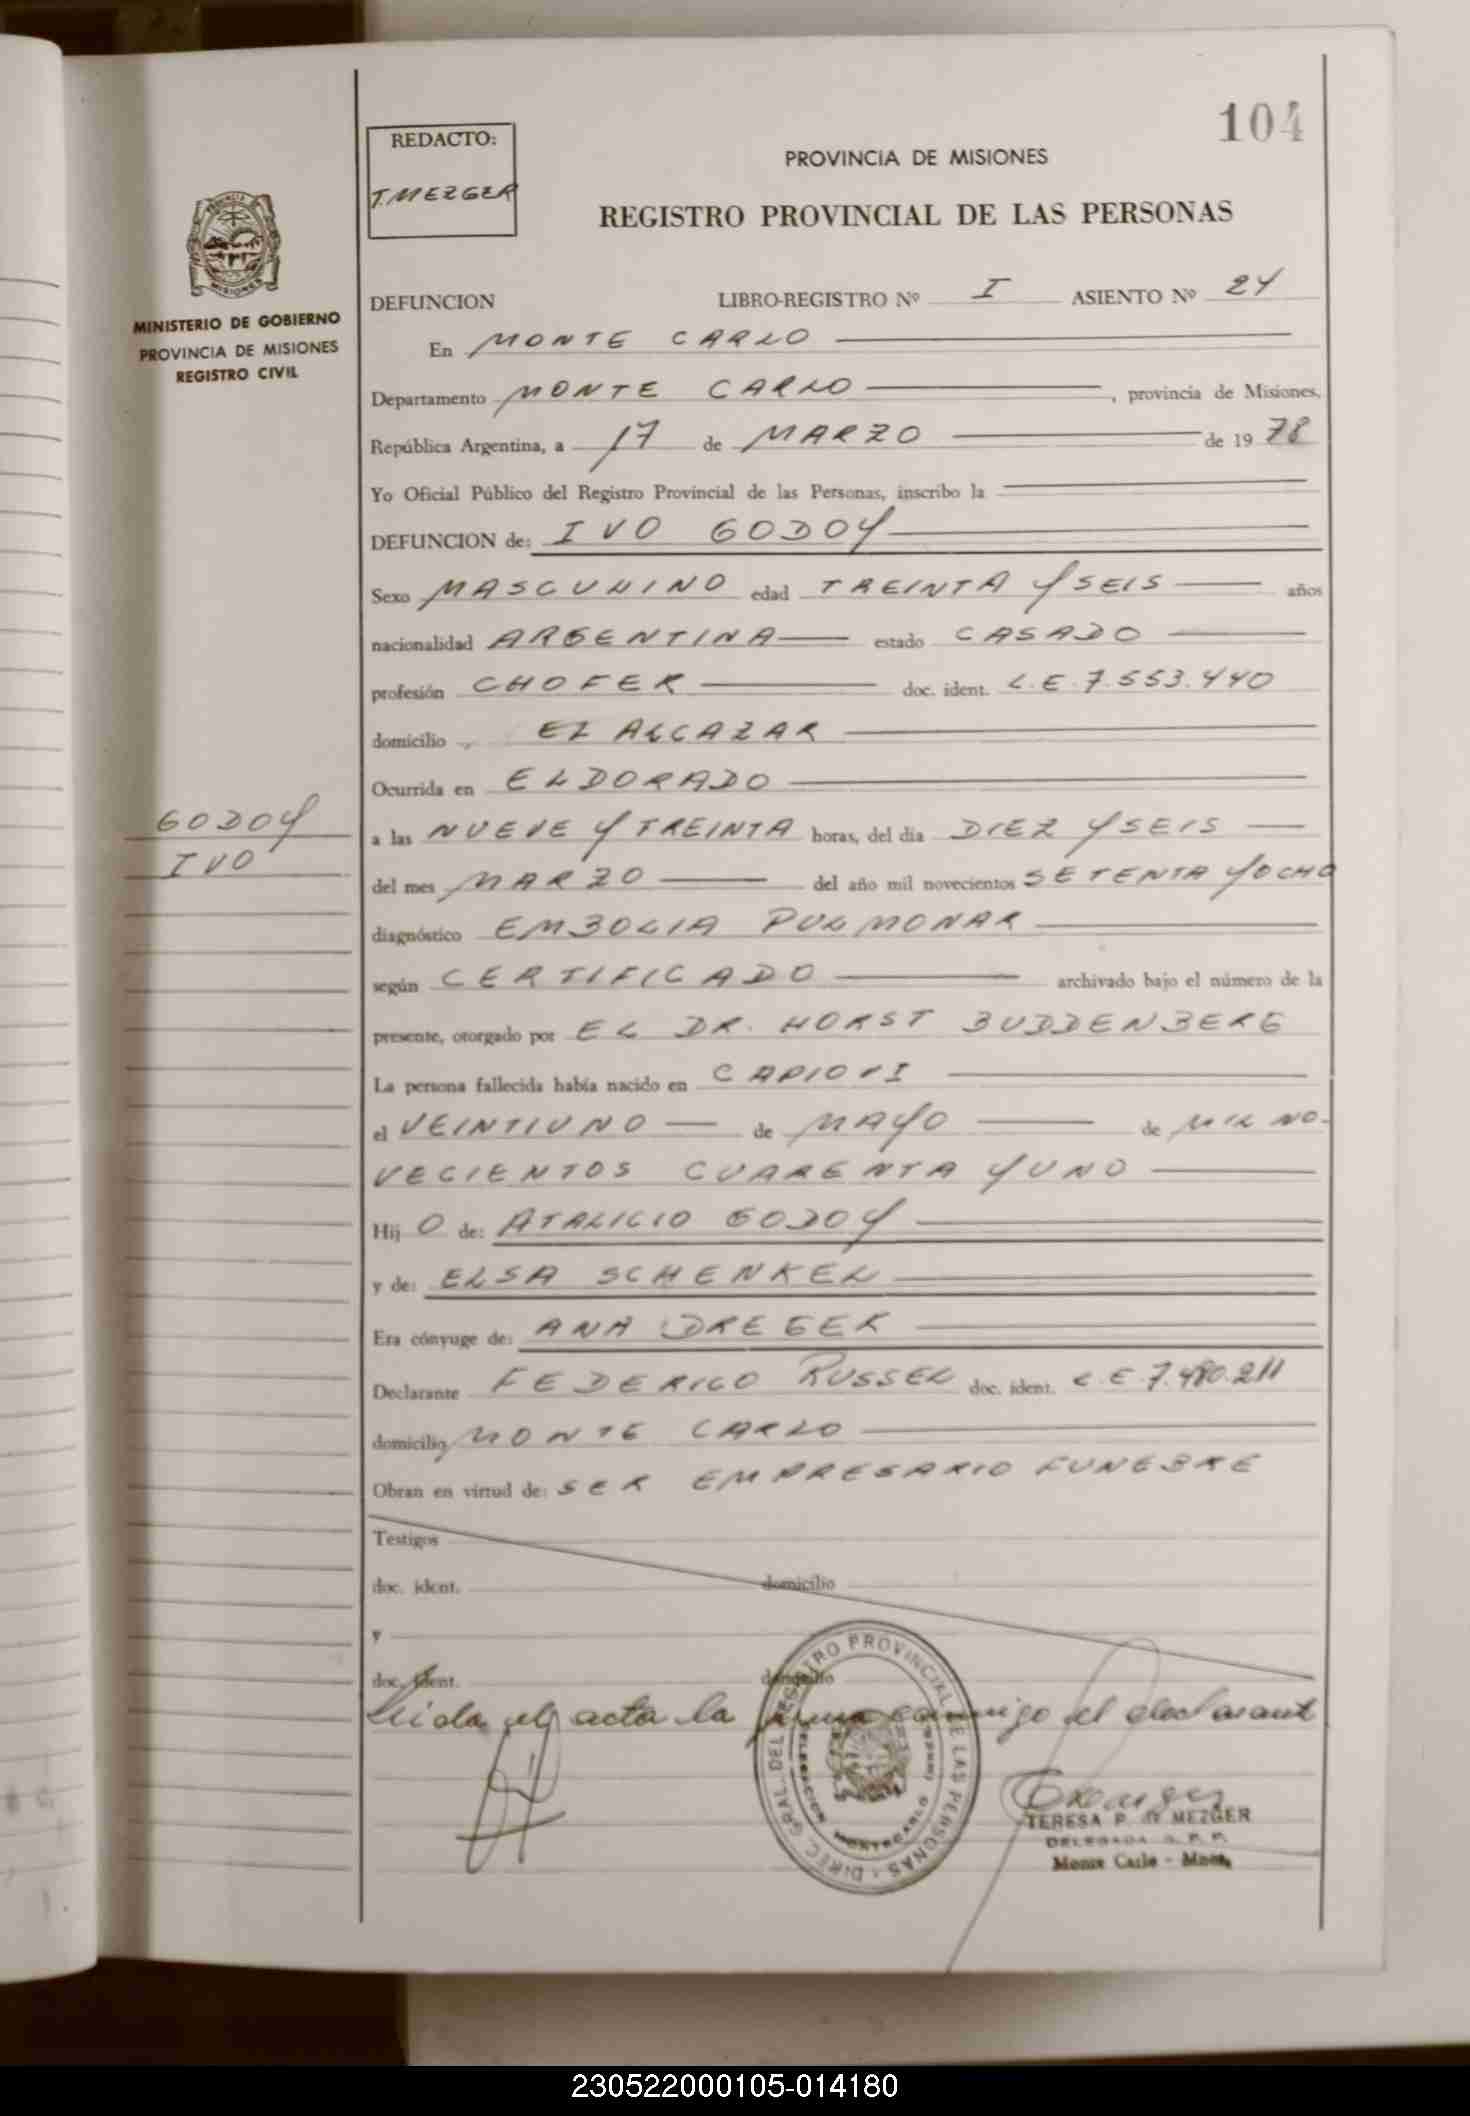 104
REDACTO:
T. MEZGER
PROVINCIA DE MISIONES
REGISTRO PROVINCIAL DE LAS PERSONAS
MINISTERIO DE GOBIERNO
PROVINCIA DE MISIONES
REGISTRO CIVIL
DEFUNCION LIBRO-REGISTRO Nº I ASIENTO Nº 24
En MONTE CARLO
Departamento MONTE CARLO, provincia de Misiones,
República Argentina, a 17 de MARZO de 1978
Yo Oficial Público del Registro Provincial de las Personas, inscribo la
DEFUNCION de: IVO GODOY
Sexo MASCULINO edad TREINTA Y SEIS años
nacionalidad ARGENTINA estado CASADO
profesión CHOFER doc. ident. L.E. 7.553.440
domicilio EL ALCAZAR
Ocurrida en ELDORADO
GODOY
IVO
a las NUEVE Y TREINTA horas, del día DIEZ Y SEIS
del mes MARZO del año mil novecientos SETENTA Y OCHO
diagnóstico EMBOLIA PULMONAR
según CERTIFICADO archivado bajo el número de la
presente, otorgado por EL DR. HORST BUDDENBERG
La persona fallecida había nacido en CAPIOVI
el VEINTIUNO de MAYO de MIL NO-
VECIENTOS CUARENTA Y UNO
Hij O de: ATALICIO GODOY
y de: ELSA SCHENKEL
Era cónyuge de: ANA DREGER
Declarante FEDERICO RUSSEL doc. ident. L.E. 7.480.211
domicilio MONTE CARLO
Obran en virtud de: SER EMPRESARIO FUNEBRE
Testigos
doc. ident. domicilio
y
doc. ident. domicilio
Leida el acta la firma conmigo el declarant
DIREC. GRAL. DEL REGISTRO PROVINCIAL DE LAS PERSONAS
DELEGACION MONTECARLO
TERESA P. MEZGER
DELEGADA R. P. P.
Monte Carlo - Mnes.
230522000105-014180